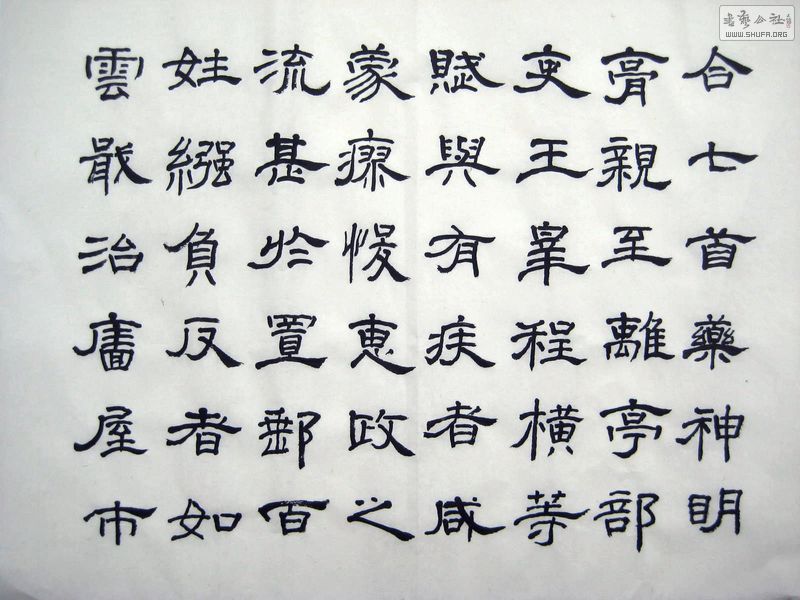 合七首藥神明
膏親至離亭部
吏王皋程橫等
賦與有疾者咸
蒙瘳悛惠政之
流甚於置郵百
姓繦負反者如
雲戢治廧屋市
書藝公社
WWW.SHUFA.ORG